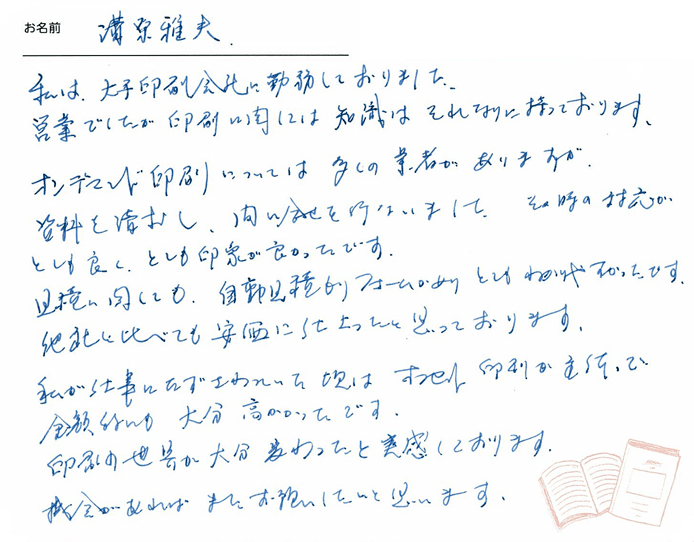 お名前 溝泉雅夫
私は、大手印刷会社に勤務しておりました。
営業でしたが印刷に関しては知識はそれなりに持っております。
オンデマンド印刷については多くの業者がありますが、
資料を請求し、問い合せを行ないました。その時の対応が
とても良く、とても印象が良かったです。
見積に関しても、自動見積りフォームがありとてもわかりやすかったです。
他社と比べても安価に仕上ったと思っております。
私が仕事にたずさわっていた頃はオフセット印刷が主体で
金額的にも大分高かったです。
印刷の世界が大分変わったと実感しております。
機会があればまたお願いしたいと思います。